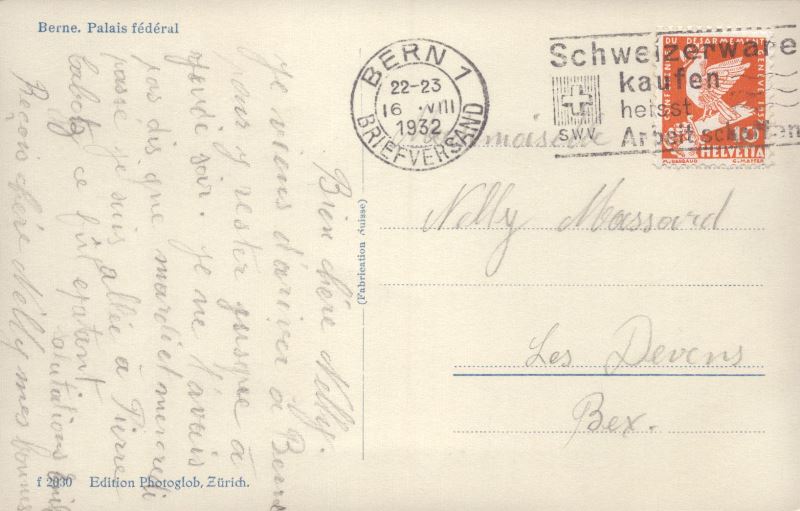 Berne. Palais fédéral
BERN 1
22-23
16 VIII
1932
BRIEFVERSAND
Schweizerware
kaufen
heisst
Arbeit schaffen
SWV
CONFERENCE DU DESARMEMENT GENEVE 1932
10
HELVETIA
Nelly Massard
Les Devens
Bex.
(Fabrication Suisse)
Bien chère Nelly.
Je viens d'arriver à Berne
pour y rester jusque à
jeudi soir. Je ne t'avais
pas dis que mardi et mercredi
passé je suis allée à Pierre
ce fut épatant
Reçois chère Nelly mes bonnes
salutations
f 2030 Edition Photoglob, Zürich.